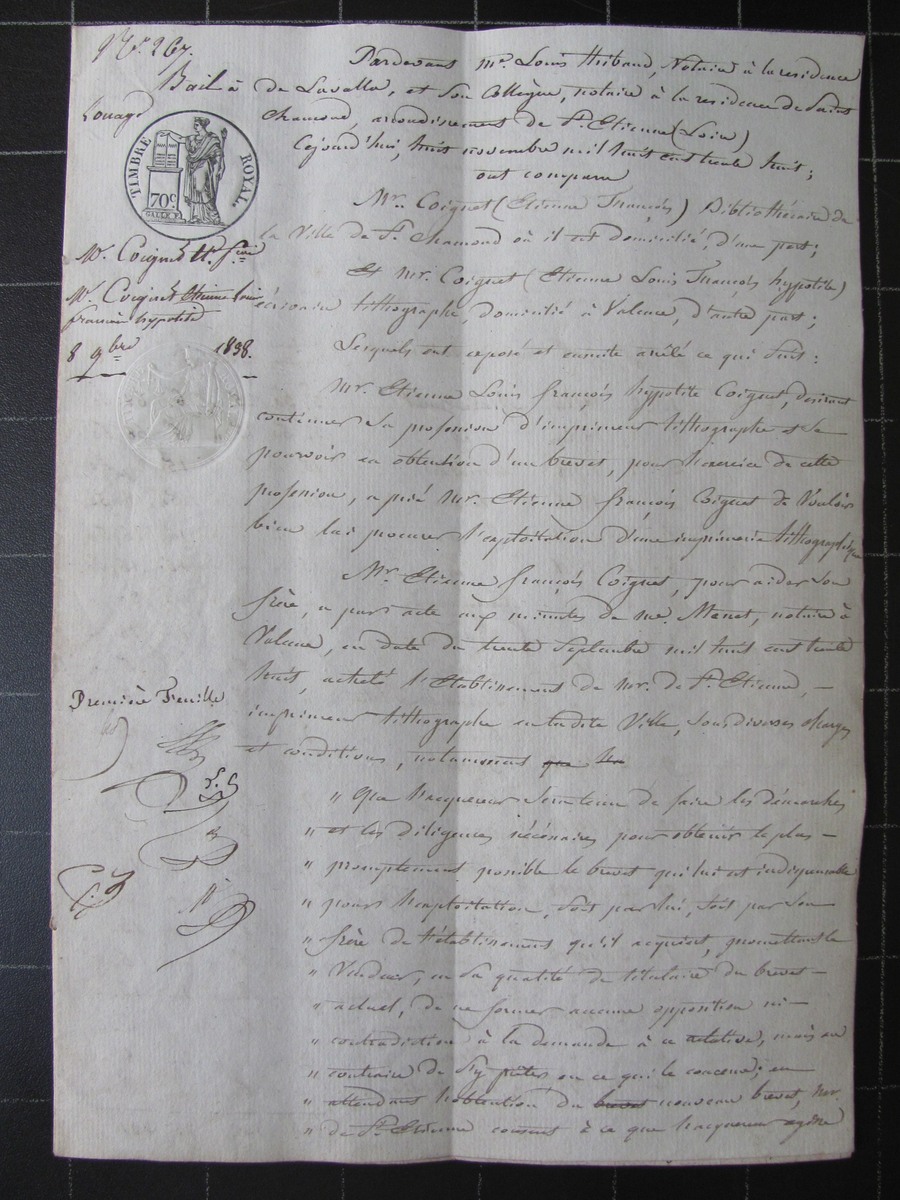 N°. 267.
Bail à
Louage
TIMBRE ROYAL.
70c
Mr. Coignet Et. fois
Mr. Coignet Etienne Louis
francois hypolite
8 9bre 1838.
Première Feuille
Pardevant Me. Louis Thibaud, Notaire à la residence
de Lavalla, et son Collègue, notaire à la residence de Saint
Chamond, arrondissement de St. Etienne (Loire)
Cejourd'hui, huit novembre mil huit cent trente huit;
ont comparu
Mr. Coignet (Etienne François) Bibliothécaire de
la Ville de St. Chamond où il est domicilié, d'une part;
Et Mr. Coignet (Etienne Louis François hypolite)
écrivain lithographe, domicilié à Valence, d'autre part;
Lesquels ont exposé et ensuite arrêté ce qui suit:
Mr. Etienne Louis françois hypolite Coignet, desirant
continuer sa profession d'imprimeur lithographe et se
pourvoir en obtention d'un brevet, pour l'exercice de cette
profession, a prié Mr. Etienne françois Coignet de Vouloir
bien lui procurer l'exploitation d'une imprimerie lithographique
Mr. Etienne françois Coignet, pour aider son
frère, a part acte aux minutes de me. Menet, notaire à
Valence, en date du trente Septembre mil huit cent trente
huit, acheté l'Etablissement de Mr. de St. Etienne, —
imprimeur lithographe en ladite Ville, sous diverses charges
et conditions, notamment que
" Que l'acquereur sera tenu de faire les démarches
" et les diligences nécéssaires pour obtenir le plus —
" promptement possible le brevet qui lui est indispensable
" pour l'exploitation, soit par lui, soit par son
" frère de l'établissement qu'il acquiert, promettant le
" Vendeur, en sa qualité de titulaire du brevet —
" actuel, de ne former aucune opposition ni —
" contradiction à la demande à ce rélative, mais au
" contraire de s'y prêter en ce qui le concerne; en
" attendant l'obtention du brevet nouveau brevet, Mr.
" de St. Etienne consent à ce que l'acquereur